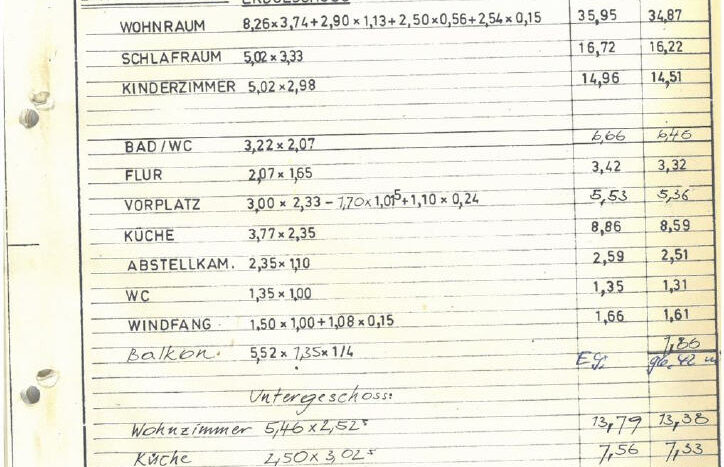 ERDGESCHOSS
WOHNRAUM 8,26×3,74+2,90×1,13+2,50×0,56+2,54×0,15 35,95 34,87
SCHLAFRAUM 5,02×3,33 16,72 16,22
KINDERZIMMER 5,02×2,98 14,96 14,51
BAD/WC 3,22×2,07 6,66 6,46
FLUR 2,07×1,65 3,42 3,32
VORPLATZ 3,00×2,33-1,70×1,01⁵+1,10×0,24 5,53 5,36
KÜCHE 3,77×2,35 8,86 8,59
ABSTELLKAM. 2,35×1,10 2,59 2,51
WC 1,35×1,00 1,35 1,31
WINDFANG 1,50×1,00+1,08×0,15 1,66 1,61
Balkon. 5,52×1,35×1/4 1,86
EG. 96.42 m
Untergeschoss:
Wohnzimmer 5,46×2,52⁵ 13,79 13,38
Küche 2,50×3,02⁵ 7,56 7,33